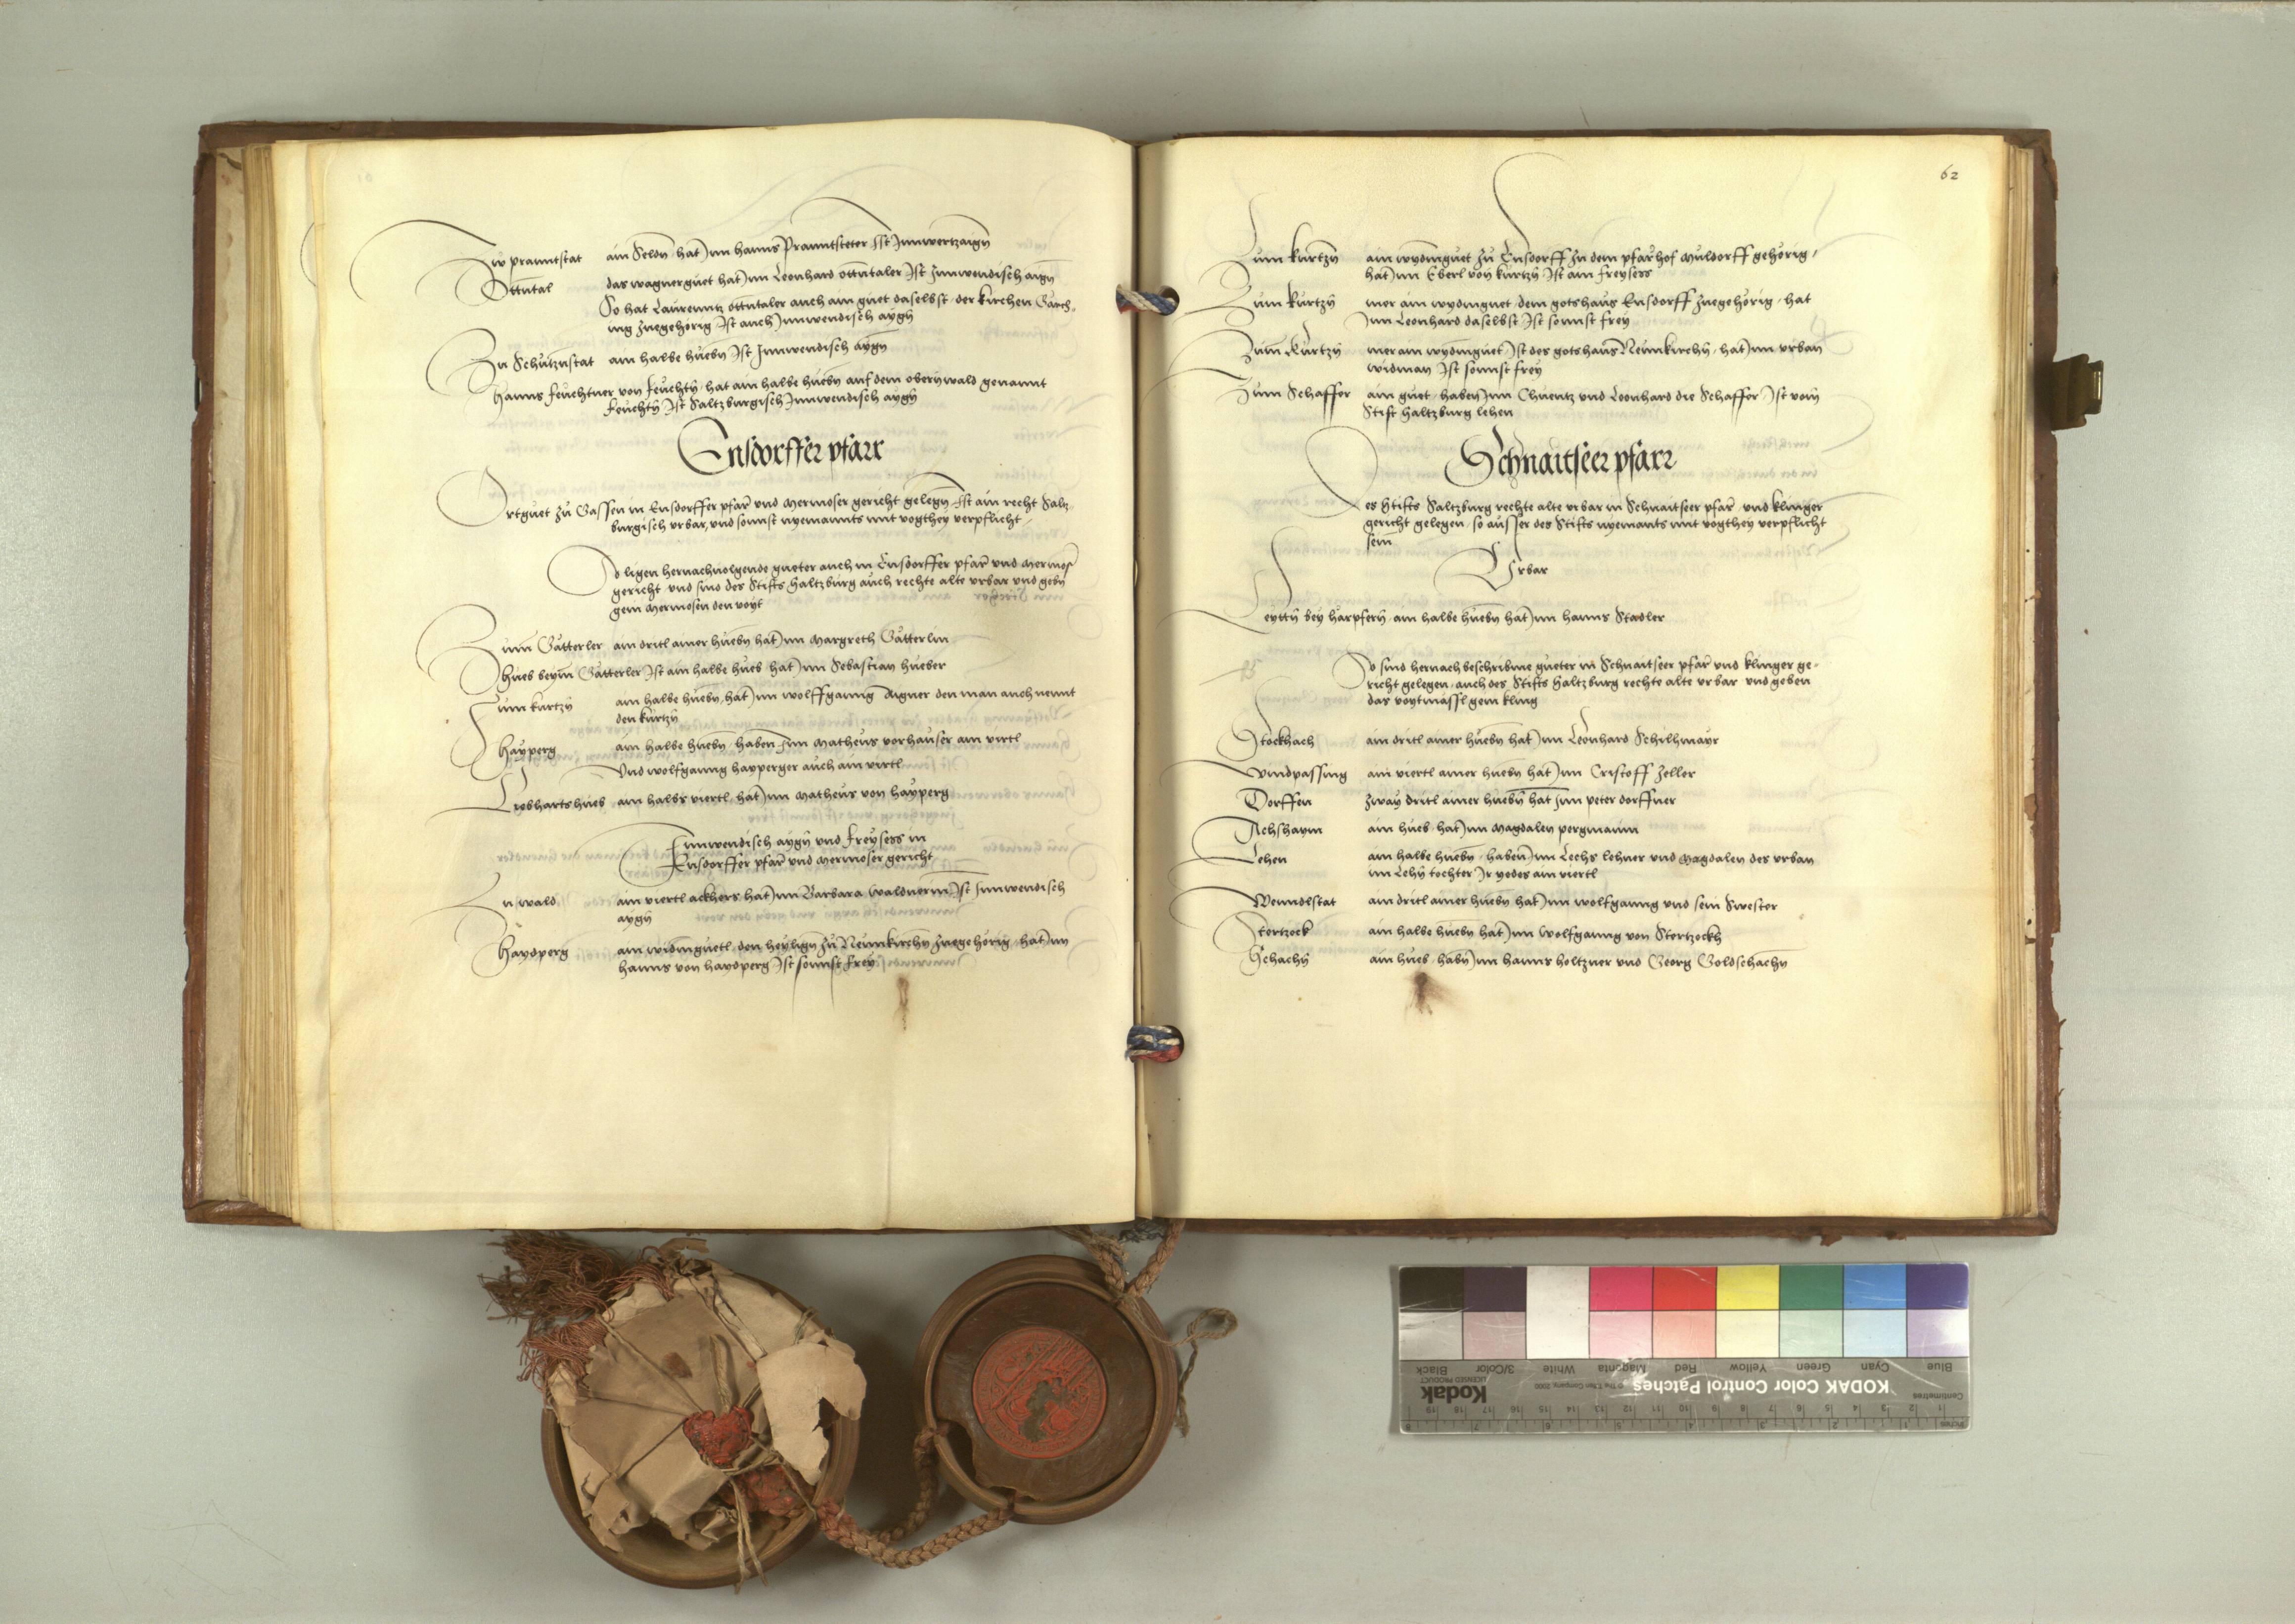 Zw pranntstat ain Seldn hat Inn hanns Pranntsteter Ist Innwertzaign
Ottntal das wagnerguet hat Inn Leonhard ottntaler Ist Innwendisch aign
So hat Laurenntz ottntaler auch ain guet daselbst der kirchen Gärch-
ing zuegehörig Ist auch Innwendisch aygn
Zu Schütznstat ain halbe huebn Ist Innwendisch aygn
Hanns feuchtner von feuchtn hat ain halbe huebn auf dem obernwald genannt
feuchtn Ist Saltzburgisch Innwendisch aygn
Ensdorffer pfarr
Ortguet zu Gassen in Ensdorffer pfarr und Mermoser gericht gelegn Ist ain recht Saltz-
burgisch urbar, und sonnst nyemannts mit vogthey verpflicht
So ligen hernachuolgende gueter auch in Ensdorffer pfarr und Mermoser
gericht und sind des Stiffts Saltzburg auch rechte alte urbar und gebn
gein Mermosen den voyt
Zum Gätterler ain dritl ainer huebn hat Inn Margreth Gätterlin
Hueb beym Gätterler Ist ain halbe hueb hat Inn Sebastian hueber
Zum kurtzn ain halbe huebn, hat Inn wolffganng Aigner den man auch nennt
den kurtzn
Hayperg ain halbe huebn haben Inn Matheus vorhauser ain virtl
Und wolfganng hayperger auch ain virtl
Liebhartshueb ain halbs viertl hat Inn Matheus von hayperg
Innwendisch aygn und freysess in
Ensdorffer pfarr und Mermoser gericht
In wald ain viertl ackhers hat Inn Barbara waldnerin Ist Innwendisch
aygn
Haydperg ain widmguetl den heylign zu Neunkirchn zuegehörig hat Inn
hanns von haydperg Ist sonnst frey
62
Zum kurtzn ain wydmguet zu Ensdorff zu dem pfarhof Muldorff gehörig,
hat Inn Eberl von kurtzn Ist ain freysess
Zum kurtzn mer ain wydmguet dem gotshaus Ensdorff zuegehörig hat
Inn Leonhard daselbst Ist sonnst frey
Zum Kurtzn mer ain wydmguet Ist des gotshaus Neunkirchn hat Inn urban
widman Ist sonnst frey
Zum Schaffer ain guet haben Inn Chuentz und Leonhard die Schaffer Ist vom
Stift Saltzburg lehen
Schnaitseer pfarr
Des Stifts Saltzburg rechte alte urbar in Schnaitseer pfarr und klinger
gericht gelegen so ausser des Stifts nyemants mit vogthey verpflicht
sein
Urbar
Leyttn bey harpfern ain halbe huebn hat Inn hanns Stadler
So sind hernach beschribne gueter in Schnaitseer pfarr und klinger ge-
richt gelegen auch des Stifts Saltzburg rechte alte urbar und geben
das voytmässl gein kling
Stockhach ain dritl ainer huebn hat Inn Leonhard Schilhmayr
Windpassing ain viertl ainer huebn hat Inn Cristoff zeller
Dorffen zway dritl ainer huebn hat Inn peter dorffner
Achshaym ain hueb hat Inn Magdalen pergmanin
Lehen ain halbe huebn haben Inn Lechs lehner und Magdalen des urban
im Lehn tochter Ir yedes ain viertl
Wenndlstat ain dritl ainer huebn hat Inn wolfganng und sein Swester
Stertzeck ain halbe huebn hat Inn Wolfganng von Stertzeckh
Schachn ain hueb habn Inn hanns holtzner und Georg Goldschachn
KODAK Color Control Patches
Kodak
LICENSED PRODUCT
Blue Cyan Green Yellow Red Magenta White 3/Color Black
Centimetres
Inches